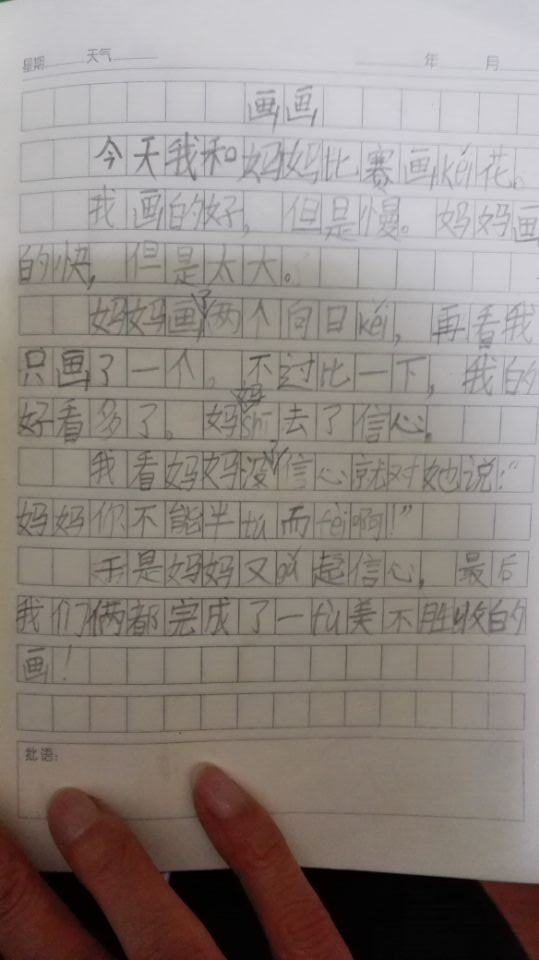 星期 天气 年 月
画画
今天我和妈妈比赛画kéi花。
我画的好，但是慢。妈妈画
的快，但是太大。
妈妈画了两个向日kéi，再看我
只画了一个。不过比一下，我的
好看多了。妈妈shī去了信心。
我看妈妈没了信心就对她说：“
妈妈你不能半tú而fèi啊！”
于是妈妈又gǔ起信心，最后
我们俩都完成了一fú美不胜收的
画！
批语：